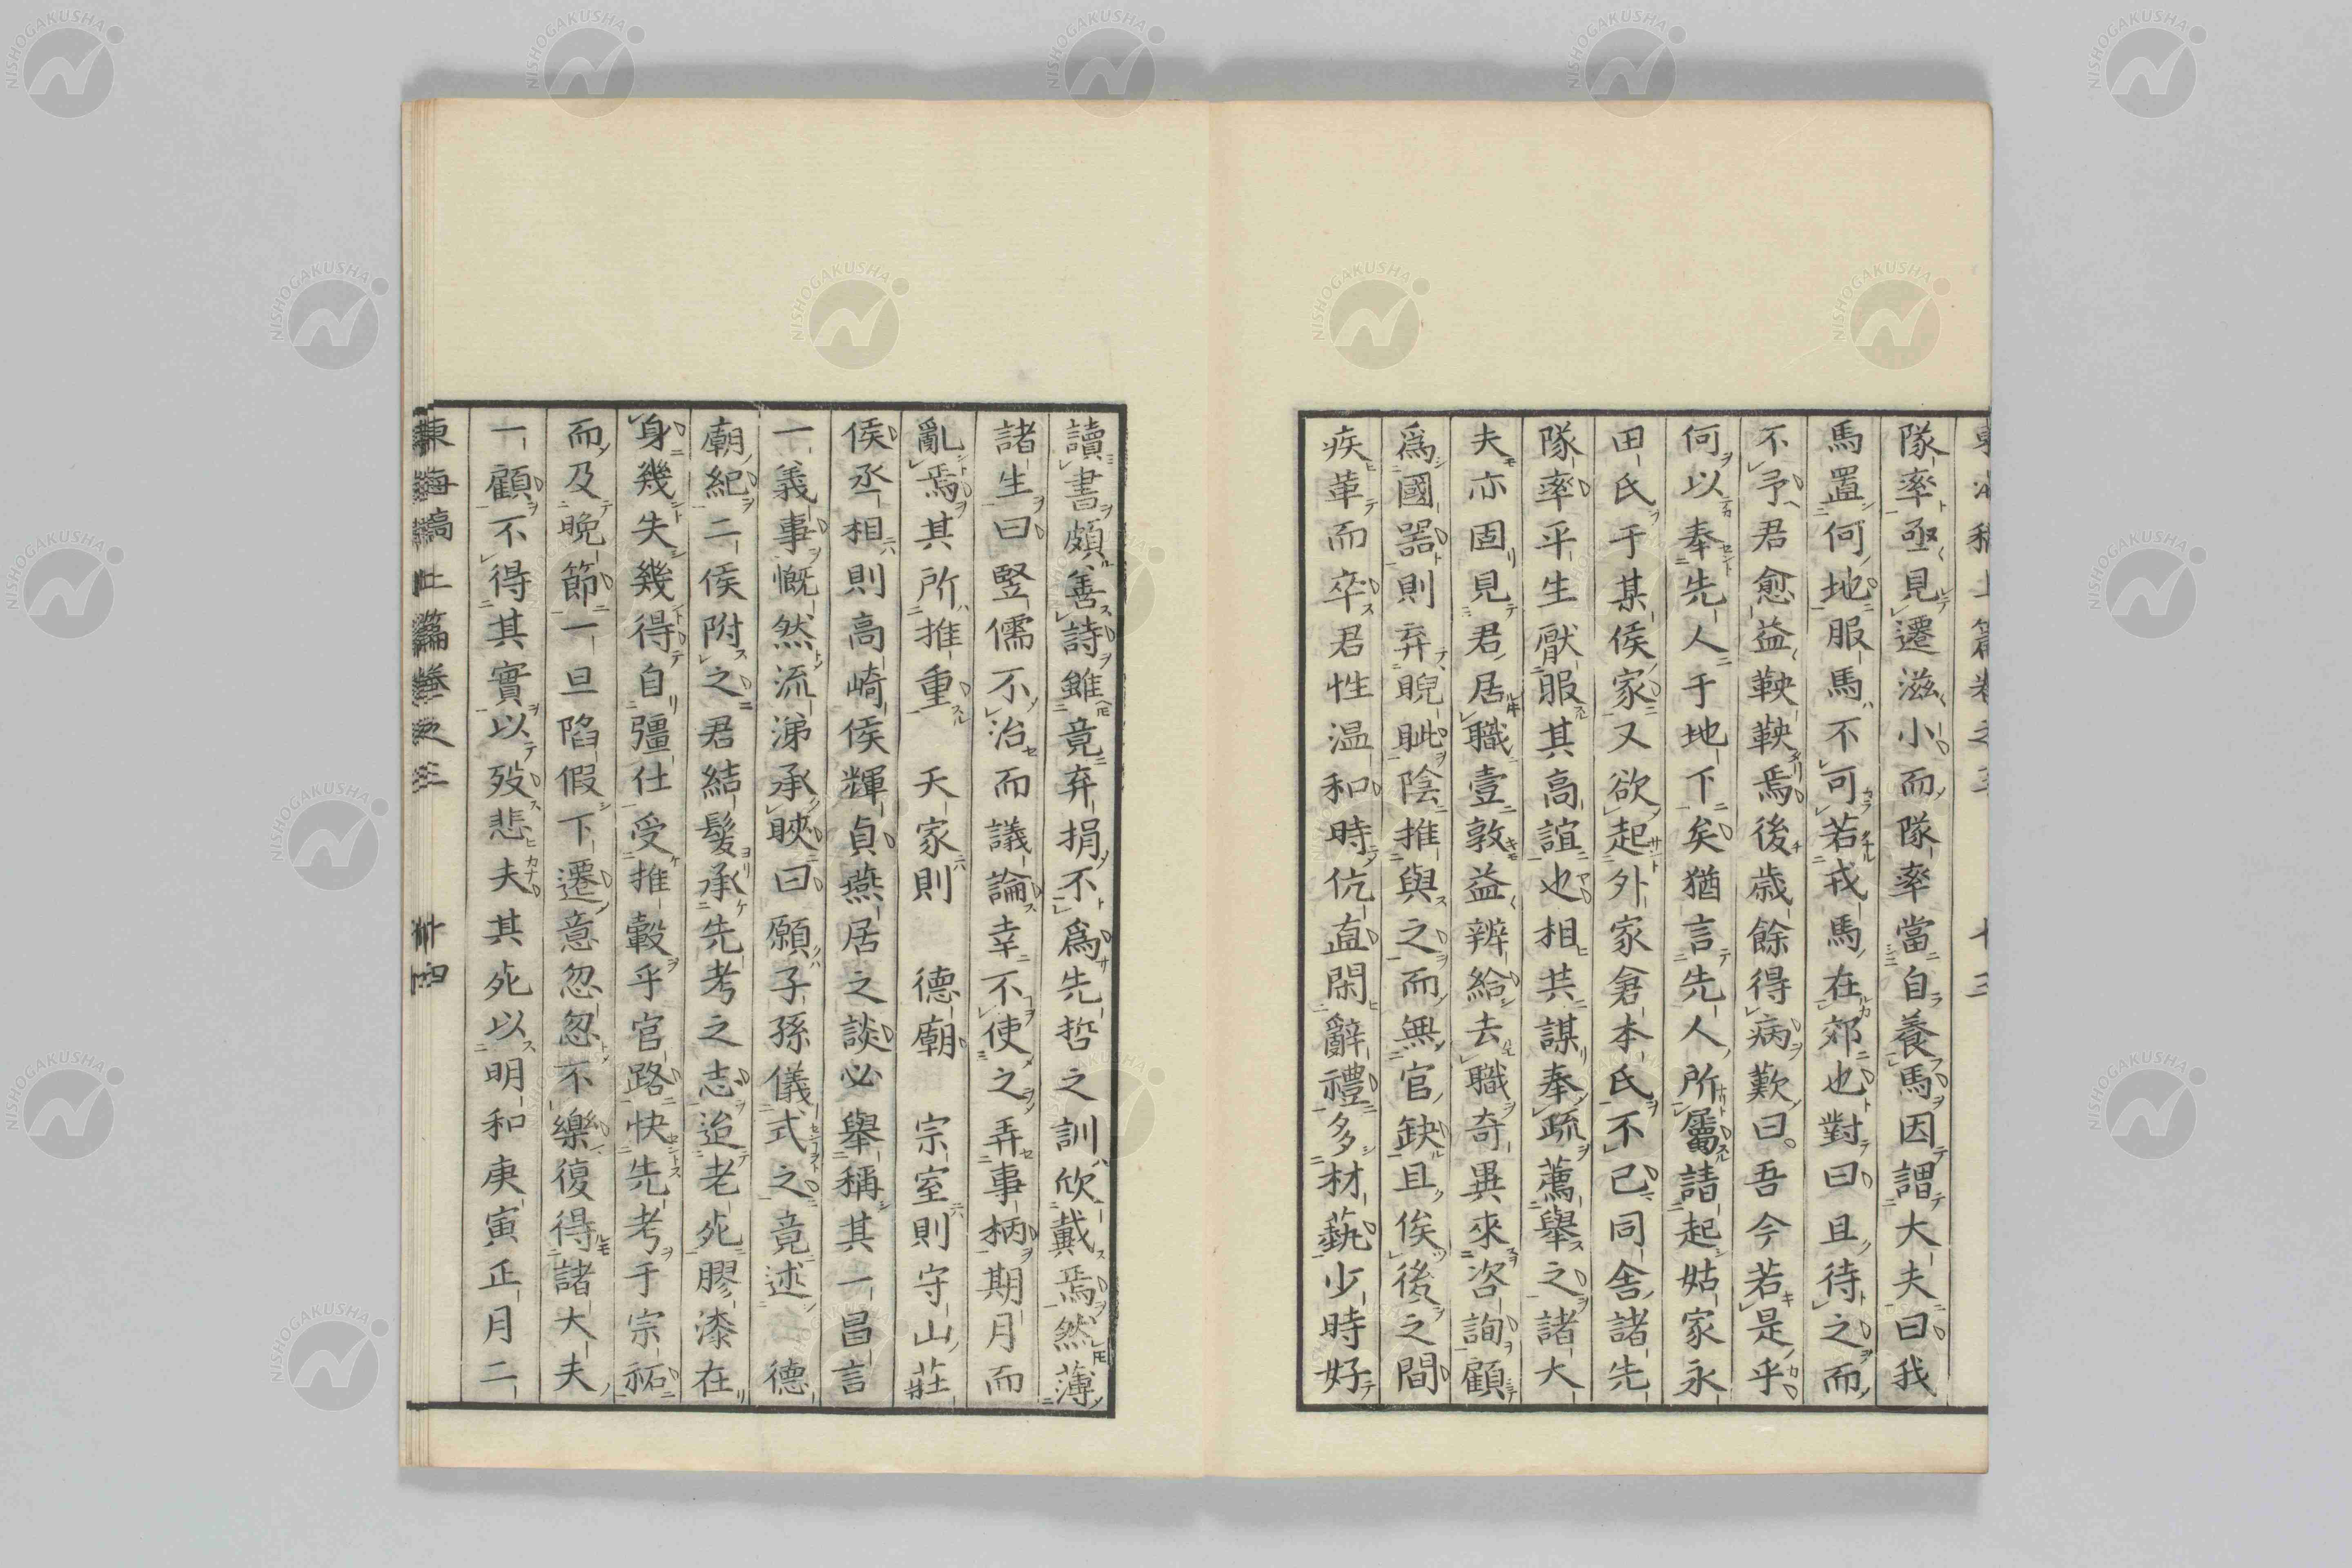 隊率亟見遷滋小而隊率當自養馬因謂大夫曰我
馬置何地服馬不可若戎馬在郊也對曰且待之而
不予君愈益鞅鞅焉後歳餘得病歎曰吾今若是乎
何以奉先人于地下矣猶言先人所屬請起姑家永
田氏于某侯家又欲起外家倉本氏不已同舍諸先
隊率平生厭服其高誼也相共謀奉疏薦舉之諸大
夫亦固見君居職壹敦益辨給去職奇異來咨詢顧
爲國器則弃睨眦陰推與之而無官缺且俟後之間
疾革而卒君性温和時伉直閑辭禮多材藝少時好
讀書頗善詩雖竟弃捐不爲先哲之訓欣戴焉然薄
諸生曰豎儒不治而議論幸不使之弄事柄期月而
亂焉其所推重 天家則 德廟 宗室則守山莊
侯丞相則高崎侯輝貞燕居之談必舉稱其一昌言
一義事慨然流涕承睫曰願子孫儀式之竟述 德
廟紀二侯附之君結髪承先考之志迨老死膠漆在
身幾失幾得自彊仕受推轂乎官路快先考于宗祏
而及晩節一旦陷假下遷意忽忽不樂復得諸大夫
一顧不得其實以歿悲夫其死以明和庚寅正月二
東海稿上篇卷之三 十四